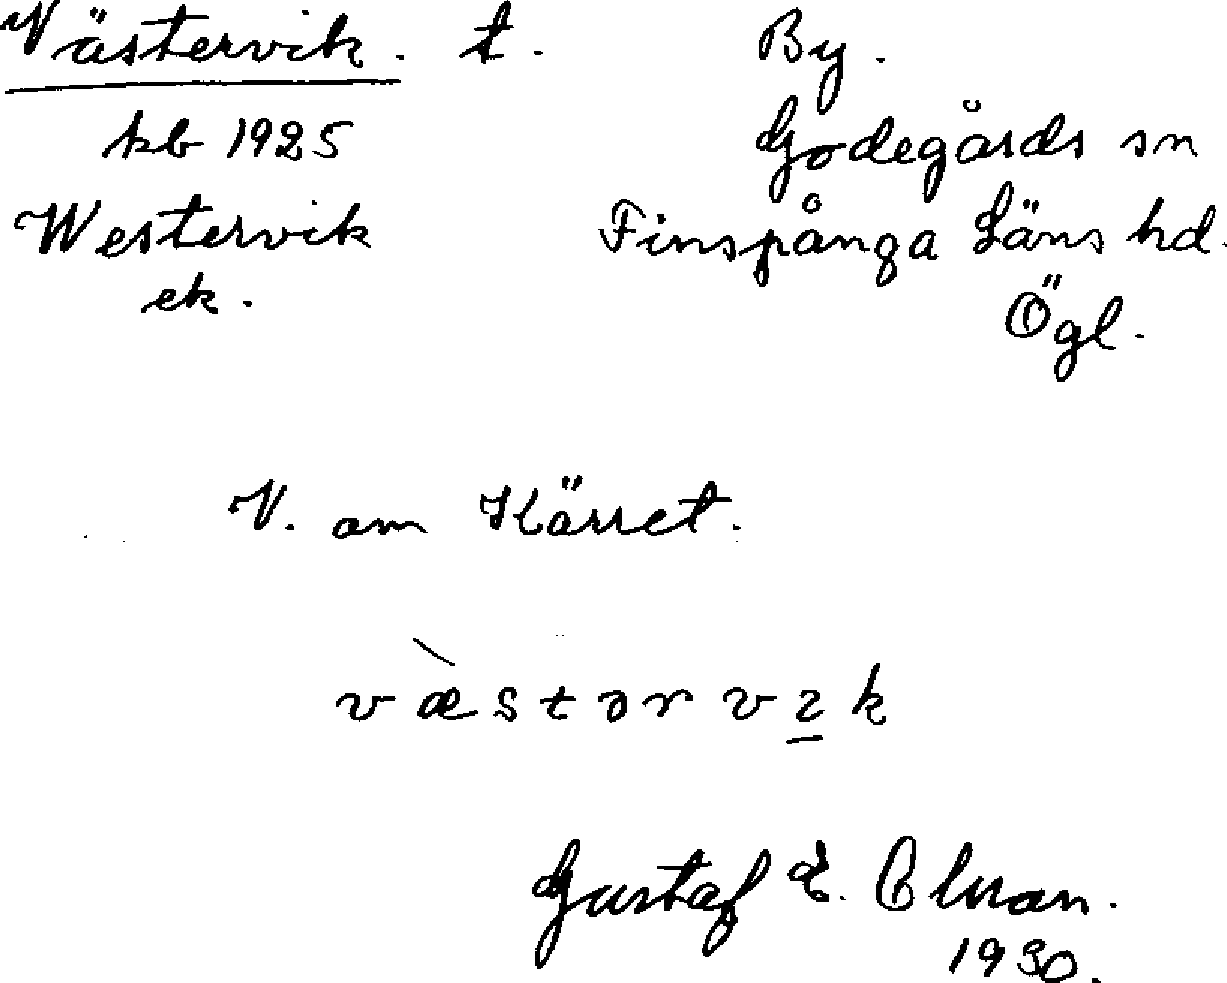 Västervik. t.
kb 1925
Westervik
ek.
By.
Godegårds sn
Finspånga Läns hd.
Ögl.
V. om Kärret.
væ̀stərvɪk
Gustaf E.
1930.